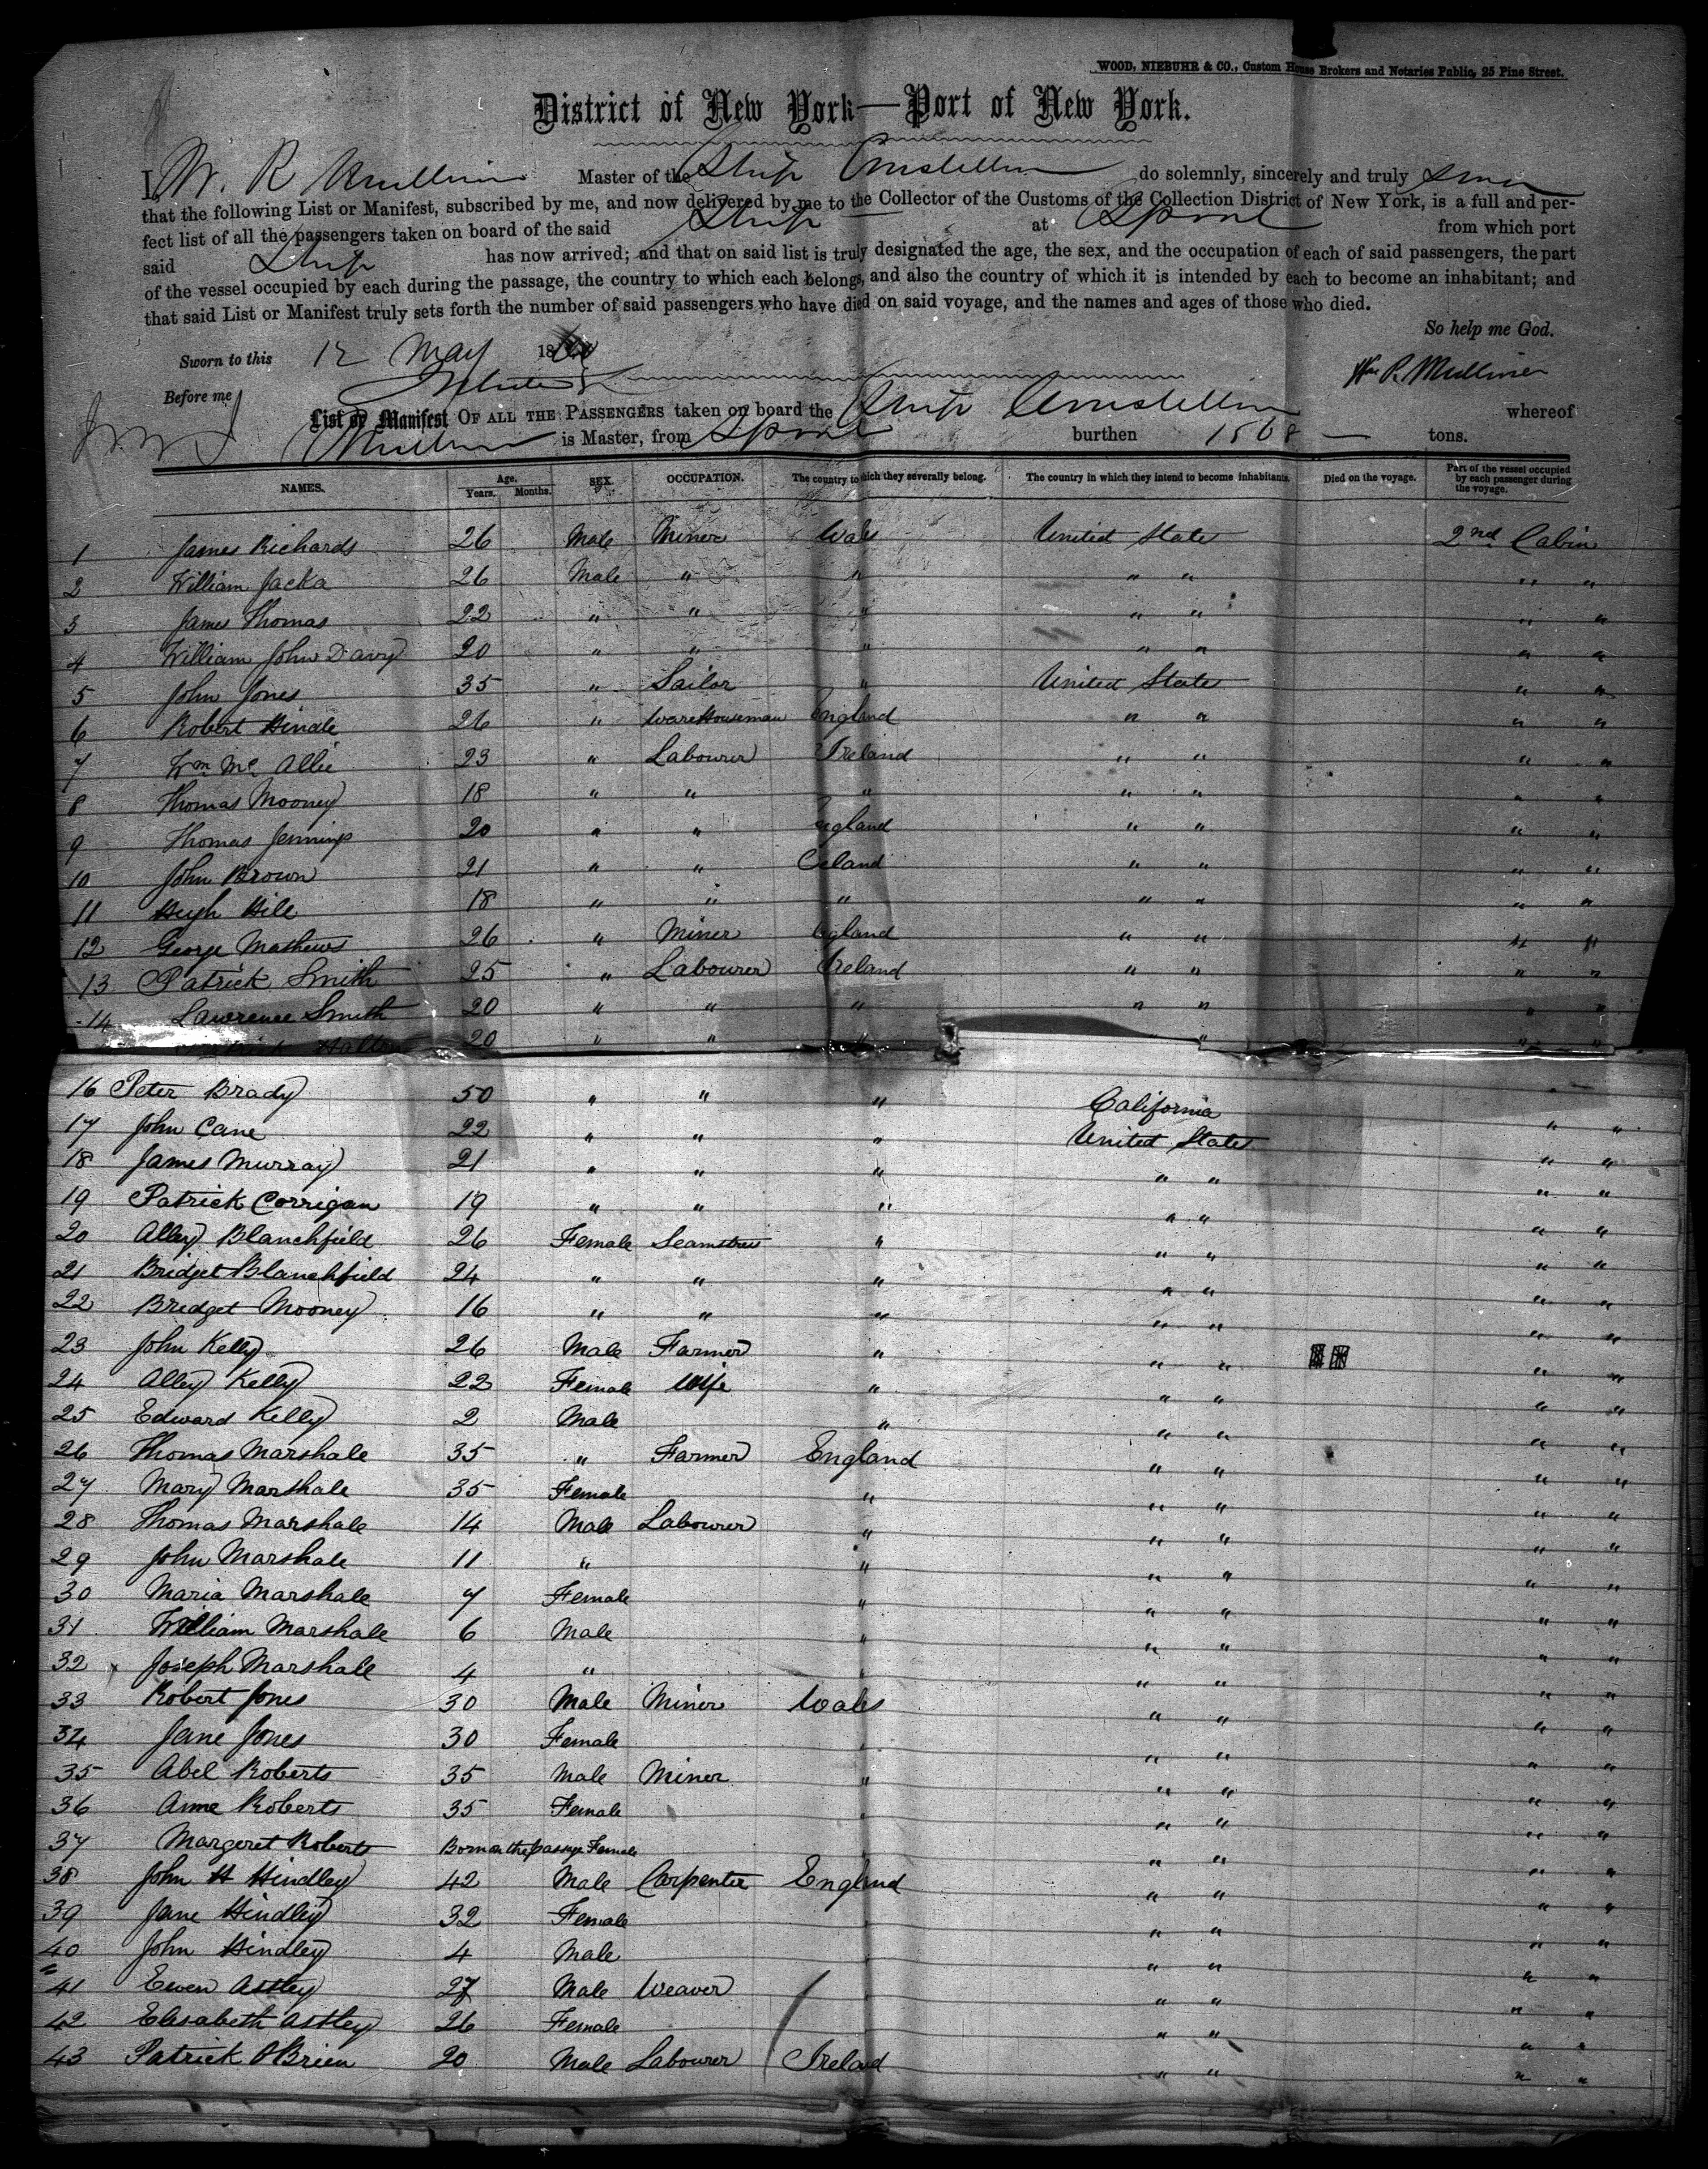 WOOD, NIEBUHR & CO., Custom House Brokers and Notaries Public, 25 Pine Street.
District of New York—Port of New York.
I, W. R Mulliner Master of the Ship do solemnly, sincerely and truly swear
that the following List or Manifest, subscribed by me, and now delivered by me to the Collector of the Customs of the Collection District of New York, is a full and per-
fect list of all the passengers taken on board of the said Ship at from which port
said Ship has now arrived; and that on said list is truly designated the age, the sex, and the occupation of each of said passengers, the part
of the vessel occupied by each during the passage, the country to which each belongs, and also the country of which it is intended by each to become an inhabitant; and
that said List or Manifest truly sets forth the number of said passengers who have died on said voyage, and the names and ages of those who died.
So help me God.
Sworn to this 12 May 18
Wm R. Mulliner
Before me
List or Manifest OF ALL THE PASSENGERS taken on board the Ship whereof
Mulliner is Master, from burthen 1568 — tons.
NAMES. Age. Years. Months. SEX. OCCUPATION. The country to which they severally belong. The country in which they intend to become inhabitants. Died on the voyage. Part of the vessel occupied by each passenger during the voyage.
1 James Richards 26 Male Miner Wales United States 2nd Cabin
2 William Jacka 26 Male " " " " " "
3 James Thomas 22 " " " " " " "
4 William John Davy 20 " " " " " " "
5 John Jones 35 " Sailor " United States " "
6 Robert Hindle 26 " WareHouseman England " " " "
7 Wm Mc Allie 23 " Labourer Ireland " " " "
8 Thomas Mooney 18 " " " " " " "
9 Thomas Jennings 20 " " England " " " "
10 John Brown 21 " " Ireland " " " "
11 Hugh Hill 18 " " " " " " "
12 George Mathews 26 " Miner England " " " "
13 Patrick Smith 25 " Labourer Ireland " " " "
14 Lawrence Smith 20 " " " " " " "
20 " " " " " "
16 Peter Brady 50 " " " California " "
17 John Cane 22 " " " United States " "
18 James Murray 21 " " " " " " "
19 Patrick Corrigan 19 " " " " " " "
20 Alley Blanchfield 26 Female Seamstress " " " " "
21 Bridget Blanchfield 24 " " " " " " "
22 Bridget Mooney 16 " " " " " " "
23 John Kelly 26 Male Farmer " " " " "
24 Alley Kelly 22 Female Wife " " " " "
25 Edward Kelly 2 Male " " " " "
26 Thomas Marshale 35 " Farmer England " " " "
27 Mary Marshale 35 Female " " " " "
28 Thomas Marshale 14 Male Labourer " " " " "
29 John Marshale 11 " " " " " "
30 Maria Marshale 7 Female " " " " "
31 William Marshale 6 Male " " " " "
32 Joseph Marshale 4 " " " " " "
33 Robert Jones 30 Male Miner Wales " " " "
34 Jane Jones 30 Female " " " " "
35 Abel Roberts 35 Male Miner " " " " "
36 Anne Roberts 35 Female " " " " "
37 Margeret Roberts Born on the passage Female " " " "
38 John H Hindley 42 Male Carpenter England " " " "
39 Jane Hindley 32 Female " " " " "
40 John Hindley 4 Male " " " " "
41 Ewen Astley 27 Male Weaver " " " "
42 Elisabeth Astley 26 Female " " " "
43 Patrick OBrien 20 Male Labourer Ireland " " " "